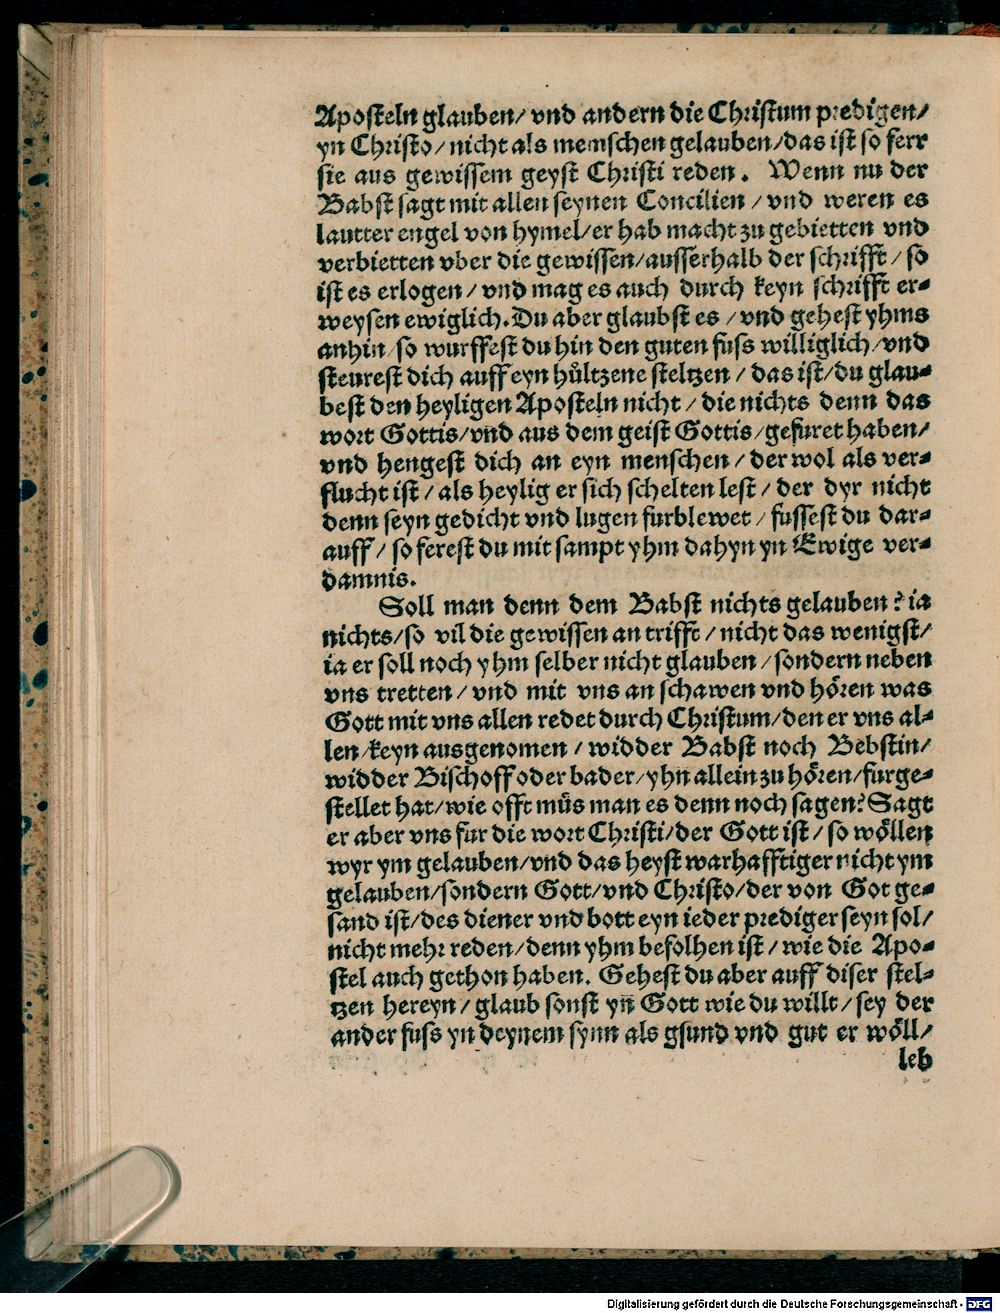 Aposteln glauben/ vnd andern die Christum predigen/
yn Christo/ nicht als memschen gelauben/das ist so ferr
sie aus gewissem geyst Christi reden. Wenn nu der
Babst sagt mit allen seynen Concilien/ vnd weren es
lautter engel von hymel/er hab macht zu gebietten vnd
verbietten vber die gewissen/ausserhalb der schrifft/ so
ist es erlogen/ vnd mag es auch durch keyn schrifft er-
weysen ewiglich. Du aber glaubst es/ vnd gehest yhms
anhin/so wurffest du hin den guten fuss williglich/vnd
steurest dich auff eyn hůltzene steltzen/ das ist/du glau-
best den heyligen Aposteln nicht/ die nichts denn das
wort Gottis/vnd aus dem geist Gottis/gefuret haben/
vnd hengest dich an eyn menschen/ der wol als ver-
flucht ist/ als heylig er sich schelten lest/ der dyr nicht
denn seyn gedicht vnd lugen furblewet/ fussest du dar-
auff/ so ferest du mit sampt yhm dahyn yn Ewige ver-
damnis.
Soll man denn dem Babst nichts gelauben? ia
nichts/so vil die gewissen an trifft/ nicht das wenigst/
ia er soll noch yhm selber nicht glauben/sondern neben
vns tretten/ vnd mit vns an schawen vnd hőren was
Gott mit vns allen redet durch Christum/den er vns al-
len/keyn ausgenomen/ widder Babst noch Bebstin/
widder Bischoff oder bader/yhn allein zu hőren/furge-
stellet hat/wie offt můs man es denn noch sagen? Sagt
er aber vns fur die wort Christi/der Gott ist/ so wőllen
wyr ym gelauben/vnd das heyst warhafftiger nicht ym
gelauben/sondern Gott/vnd Christo/der von Got ge-
sand ist/des diener vnd bott eyn ieder prediger seyn sol/
nicht mehr reden/denn yhm befolhen ist/ wie die Apo-
stel auch gethon haben. Gehest du aber auff diser stel-
tzen hereyn/ glaub sonst yn̄ Gott wie du willt/ sey der
ander fuss yn deynem synn als gsund vnd gut er wőll/
leb
Digitalisierung gefördert durch die Deutsche Forschungsgemeinschaft - DFG